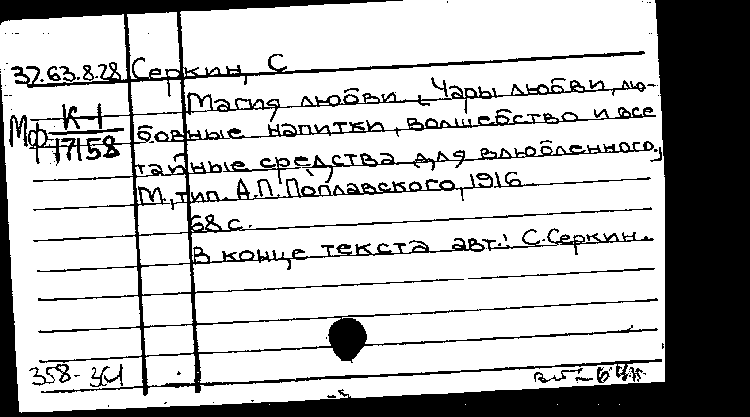 37.63.8.28 Серкин, С
Магия любви. Чары любви, лю-
Мф К-1 бовные напитки, волшебство и все
17158 тайные средства для влюбленного,
М., тип. А.П. Поплавского, 1916
68 с.
В конце текста авт.: С. Серкин.
358-361